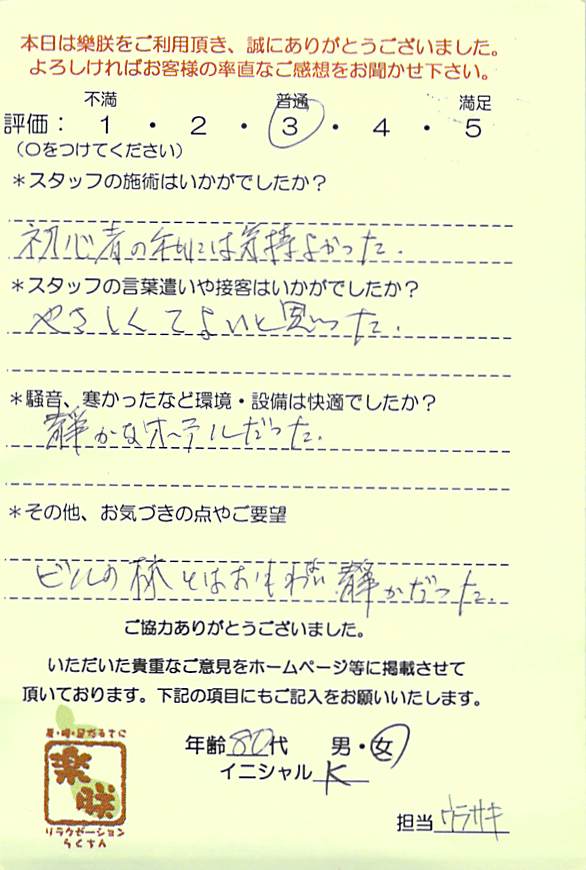 本日は樂朕をご利用頂き、誠にありがとうございました。
よろしければお客様の率直なご感想をお聞かせ下さい。
不満 普通 満足
評価： 1 ・ 2 ・ 3 ・ 4 ・ 5
（○をつけてください）
＊スタッフの施術はいかがでしたか？
初心者の私には気持よかった.
＊スタッフの言葉遣いや接客はいかがでしたか？
やさしくてよいと思った.
＊騒音、寒かったなど環境・設備は快適でしたか？
静かなホテルだった.
＊その他、お気づきの点やご要望
ビルの とはおもわない 静かだった.
ご協力ありがとうございました。
いただいた貴重なご意見をホームページ等に掲載させて
頂いております。下記の項目にもご記入をお願いいたします。
年齢 80代 男・女
イニシャル K
担当 ウラサキ
樂朕
リラクゼーション
らくちん